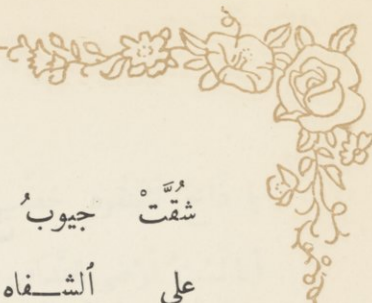 شُقَّتْ جيوبُ
على ٱلشـفاه